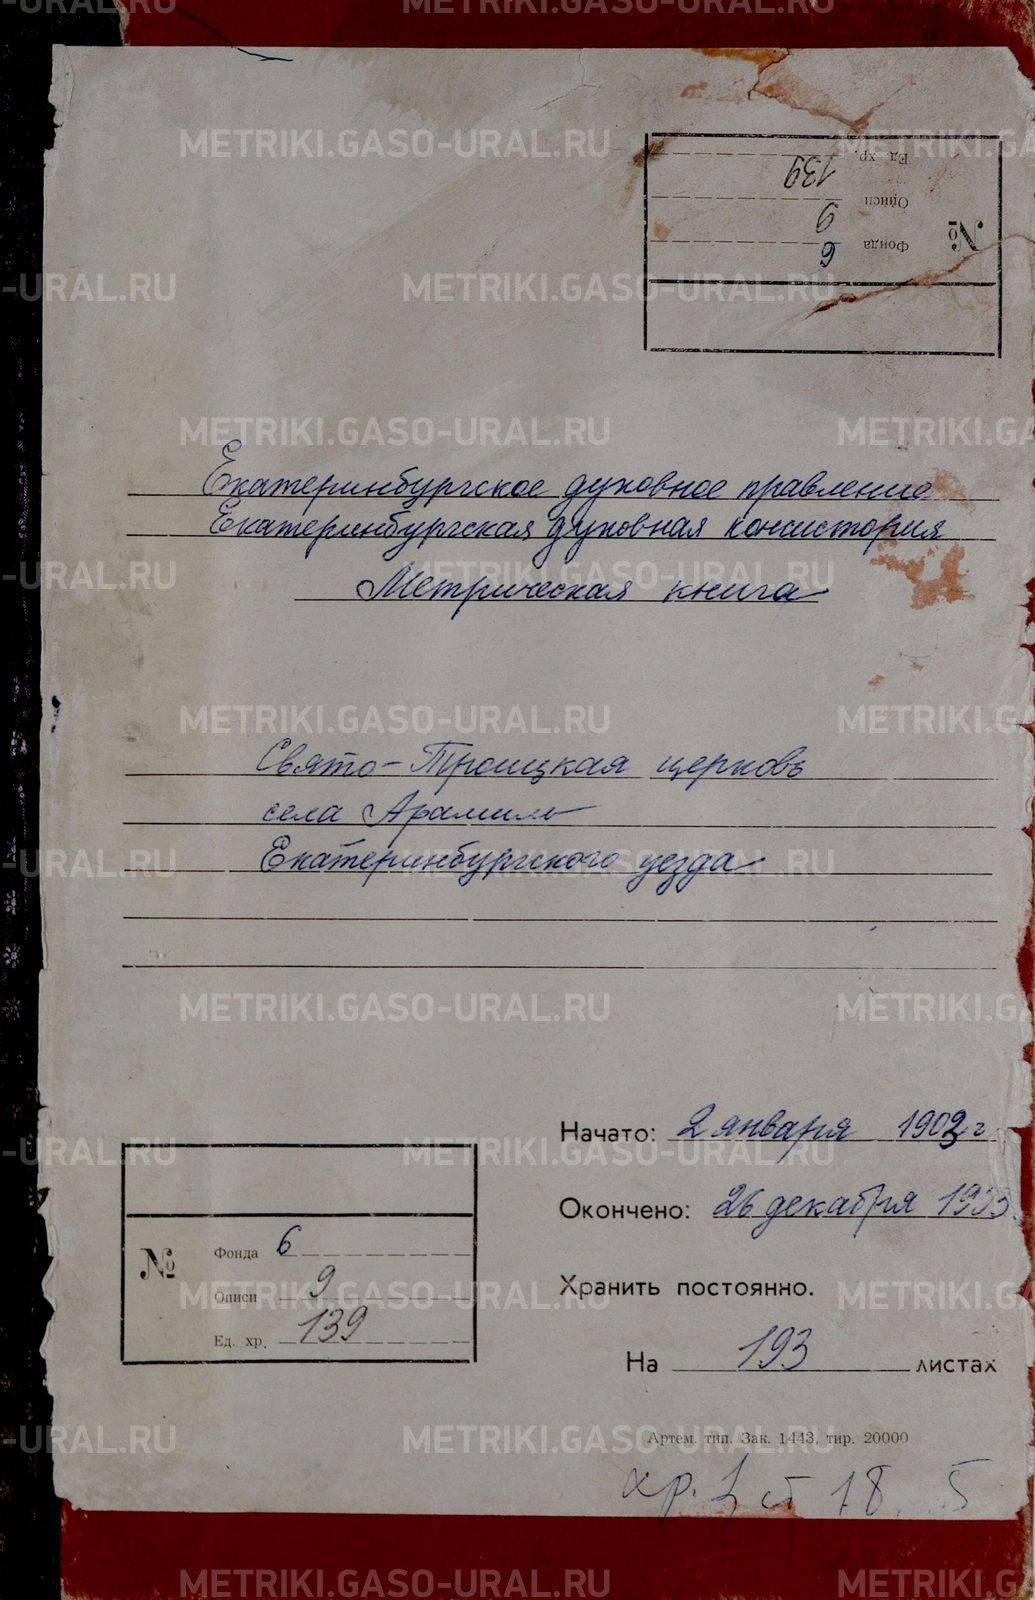 METRIKI.GASO-URAL.RU
Ед. хр. 139
Описи 9
Фонда 6
№
Екатеринбургское духовное правление
Екатеринбургская духовная консистория
Метрическая книга
Свято-Троицкая церковь
села Арамиль
Екатеринбургского уезда
Начато: 2 января 1903 г.
Окончено: 26 декабря 1903
Хранить постоянно.
На 193 листах
№
Фонда 6
Описи 9
Ед. хр. 139
Артем. тип. Зак. 1443, тир. 20000
хр. 1 ст 18 5